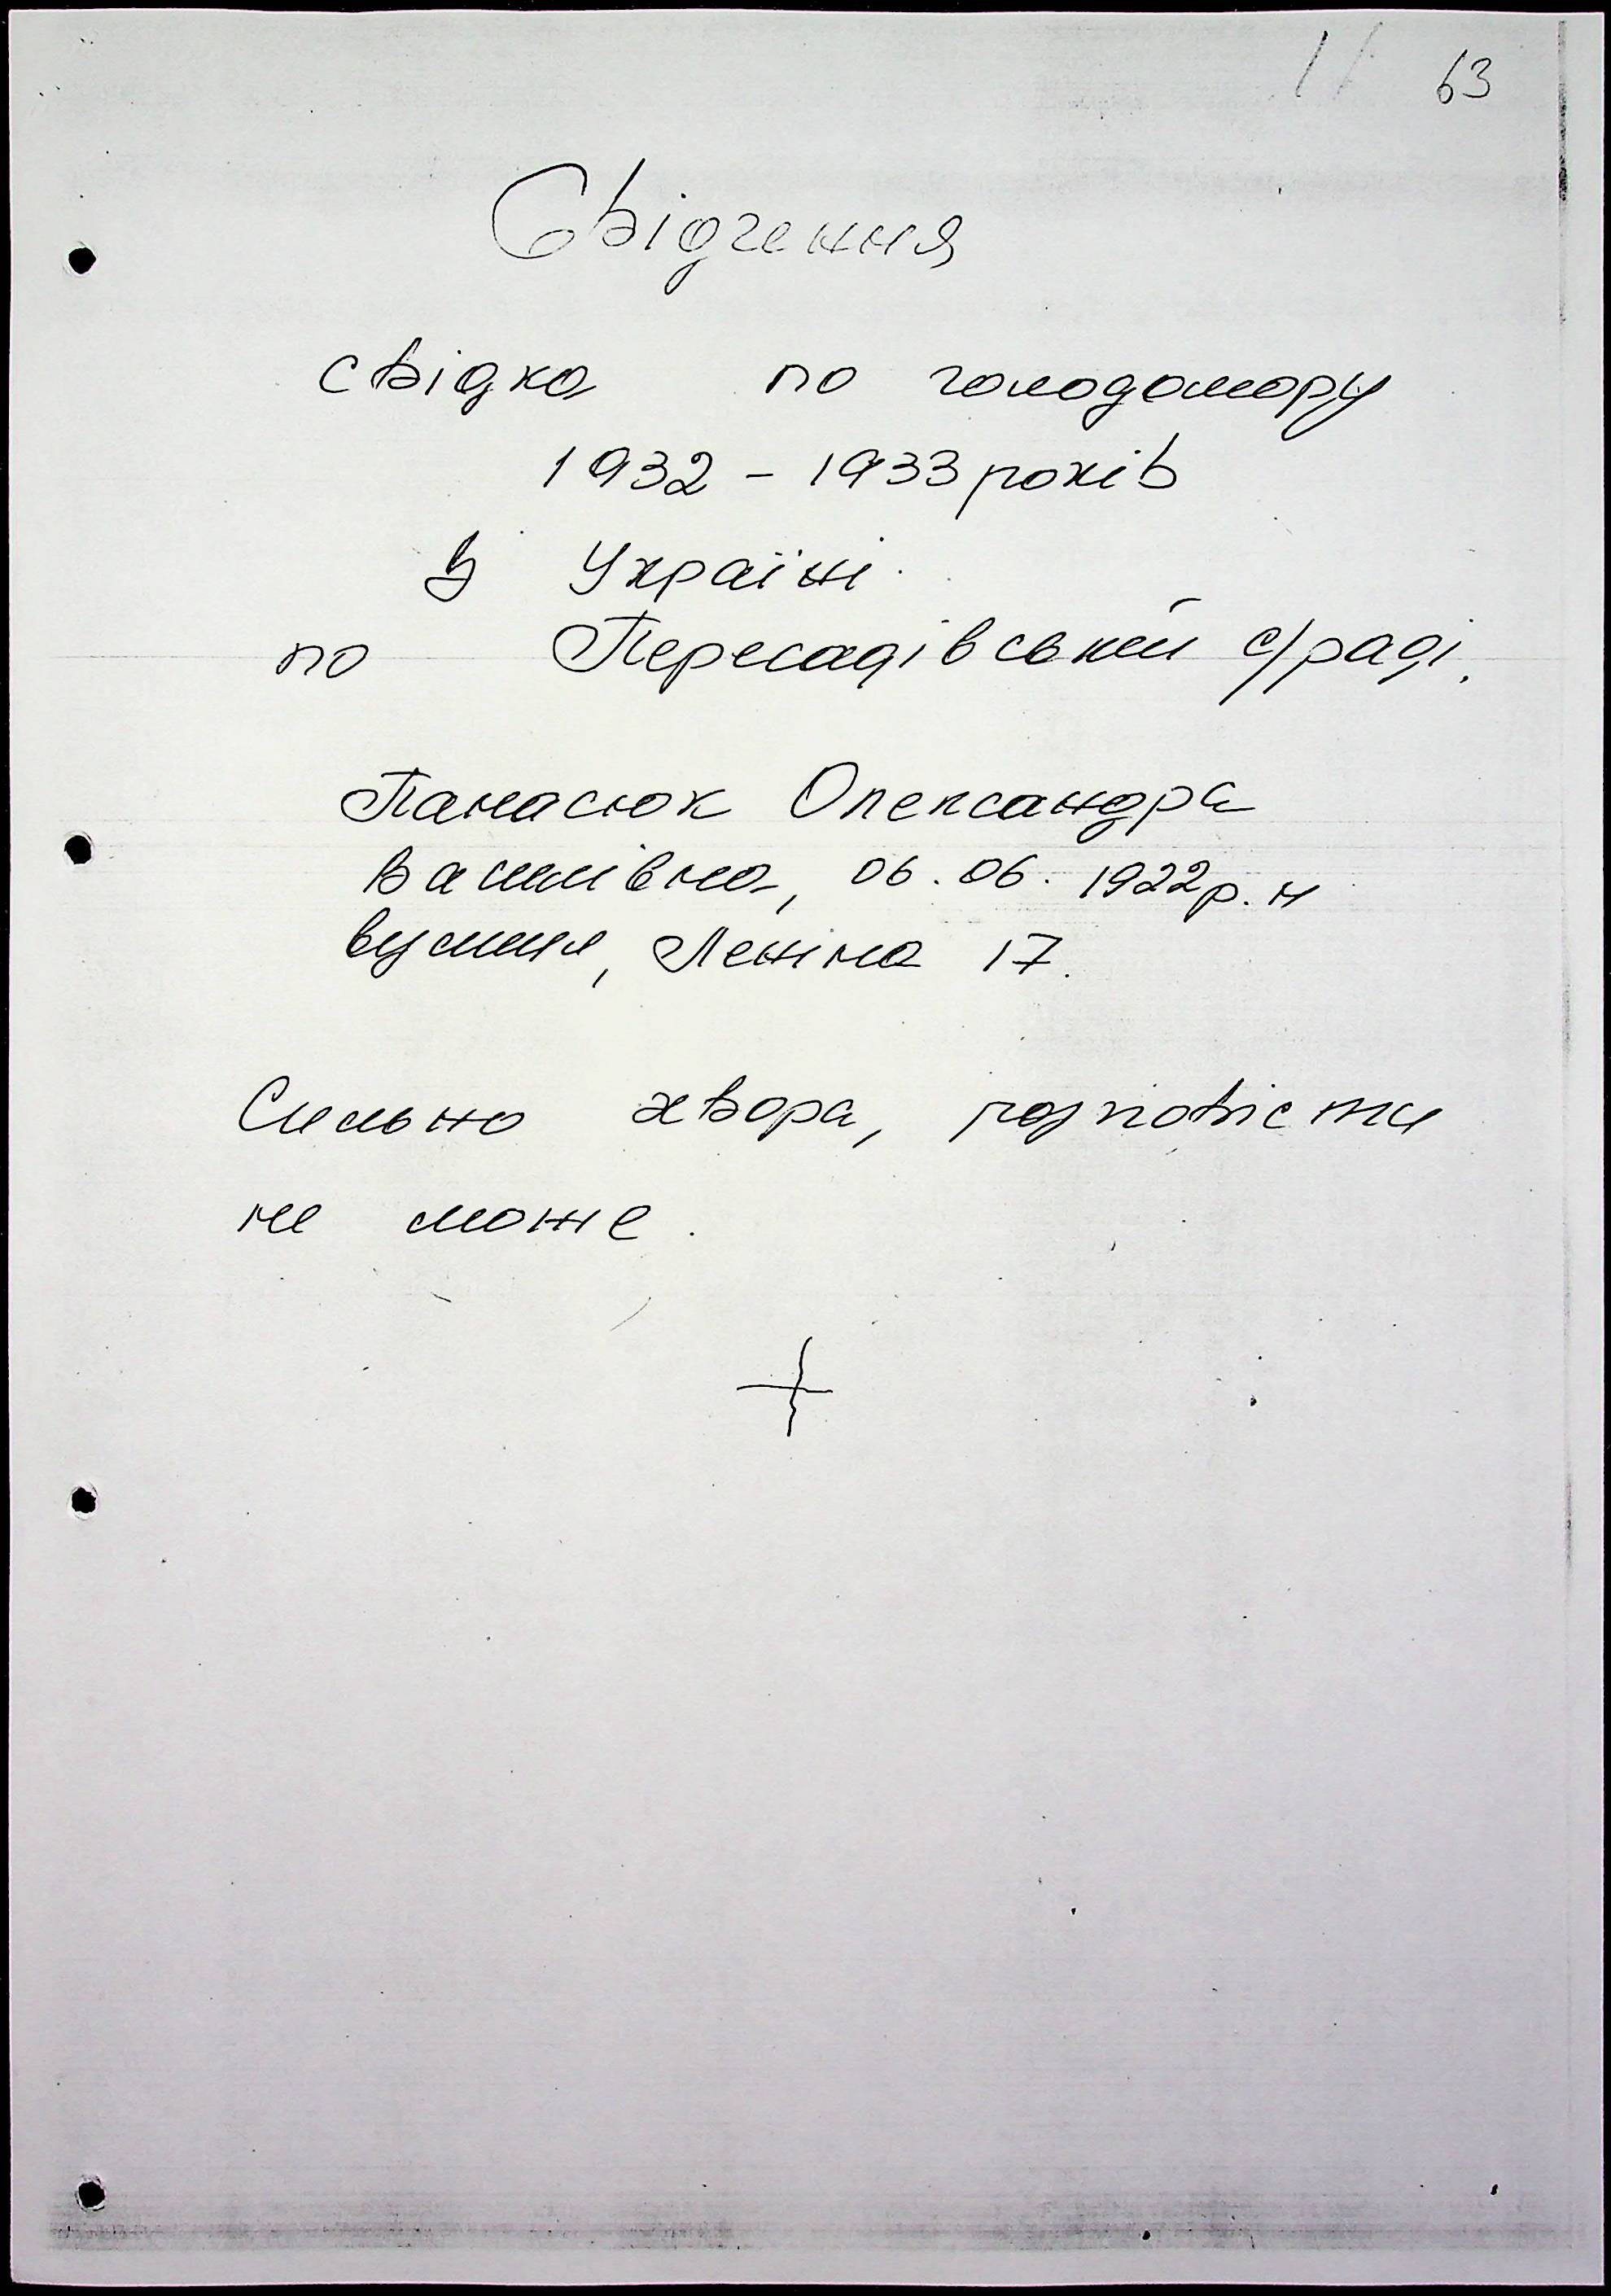 63
Свідчення
свідка по голодомору
1932 - 1933 років
в Україні.
по Пересадівській с/раді.
Панасюк Олександра
Василівна, 06.06.1922 р. н
вулиця, Леніна 17.
Сильно хвора, розповісти
не може.